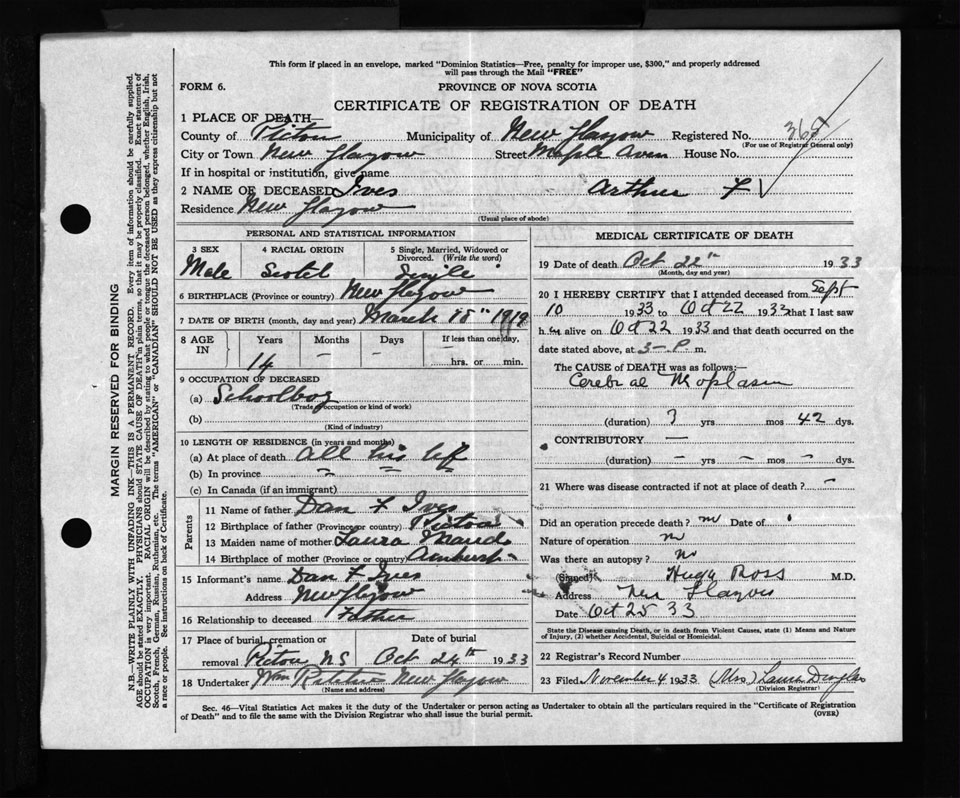 This form if placed in an envelope, marked "Dominion Statistics—Free, penalty for improper use, $300," and properly addressed
will pass through the Mail "FREE"
FORM 6.
PROVINCE OF NOVA SCOTIA
CERTIFICATE OF REGISTRATION OF DEATH
1 PLACE OF DEATH
County of Pictou Municipality of New Glasgow Registered No. 362
(For use of Registrar General only)
City or Town New Glasgow Street Maple Aven House No.
If in hospital or institution, give name
2 NAME OF DECEASED Ives Arthur F
Residence New Glasgow
(Usual place of abode)
PERSONAL AND STATISTICAL INFORMATION
3 SEX 4 RACIAL ORIGIN 5 Single, Married, Widowed or Divorced. (Write the word)
Male Scotch Single
6 BIRTHPLACE (Province or country) New Glasgow
7 DATE OF BIRTH (month, day and year) March 18" 1919
8 AGE IN Years Months Days If less than one day,
14 — — hrs. or min.
9 OCCUPATION OF DECEASED
(a) Schoolboy
(Trade, occupation or kind of work)
(b)
(Kind of industry)
10 LENGTH OF RESIDENCE (in years and months)
(a) At place of death All his life
(b) In province
(c) In Canada (if an immigrant)
Parents
11 Name of father Dan F Ives
12 Birthplace of father (Province or country) Pictou
13 Maiden name of mother Laura
14 Birthplace of mother (Province or country) Amherst
15 Informant's name Dan F Ives
Address New Glasgow
16 Relationship to deceased Father
17 Place of burial, cremation or Date of burial
removal Pictou N.S Oct 24th 1933
18 Undertaker Wm New Glasgow
(Name and address)
MEDICAL CERTIFICATE OF DEATH
19 Date of death Oct 22nd 1933
(Month, day and year)
20 I HEREBY CERTIFY that I attended deceased from Sept
10 1933 to Oct 22 1933 that I last saw
h im alive on Oct 22 1933 and that death occurred on the
date stated above, at 3-P m.
The CAUSE of DEATH was as follows:—
Cerebral Neoplasm
(duration) yrs mos 42 dys.
CONTRIBUTORY —
(duration) — yrs — mos — dys.
21 Where was disease contracted if not at place of death? —
Did an operation precede death? no Date of
Nature of operation no
Was there an autopsy? No
(Signed) Hugh Ross M.D.
Address New Glasgow
Date Oct 25 33
State the Disease causing Death, or in death from Violent Causes, state (1) Means and Nature
of Injury, (2) whether Accidental, Suicidal or Homicidal.
22 Registrar's Record Number
23 Filed November 4 1933 (Mrs) Laura Douglas
(Division Registrar)
Sec. 46—Vital Statistics Act makes it the duty of the Undertaker or person acting as Undertaker to obtain all the particulars required in the "Certificate of Registration
of Death" and to file the same with the Division Registrar who shall issue the burial permit.
(OVER)
MARGIN RESERVED FOR BINDING
N.B.—WRITE PLAINLY WITH UNFADING INK—THIS IS A PERMANENT RECORD. Every item of information should be carefully supplied.
AGE should be stated EXACTLY. PHYSICIANS should STATE CAUSE OF DEATH in plain terms, so that it may be properly classified. Exact statement of
OCCUPATION is very important. RACIAL ORIGIN will be described by stating to what people or tongue the deceased person belonged, whether English, Irish,
Scotch, French, German, Russian, Ruthenian, etc. The terms "AMERICAN" or "CANADIAN" SHOULD NOT BE USED as they express citizenship but not
a race or people. See instructions on back of Certificate.